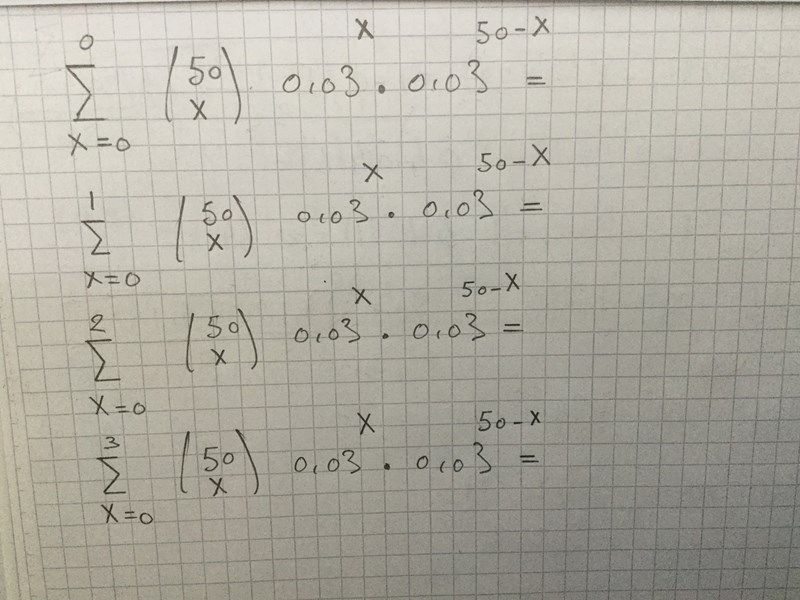 0
∑ (50 x) 0,03^x · 0,03^50-x =
x=0
1
∑ (50 x) 0,03^x · 0,03^50-x =
x=0
2
∑ (50 x) 0,03^x · 0,03^50-x =
x=0
3
∑ (50 x) 0,03^x · 0,03^50-x =
x=0